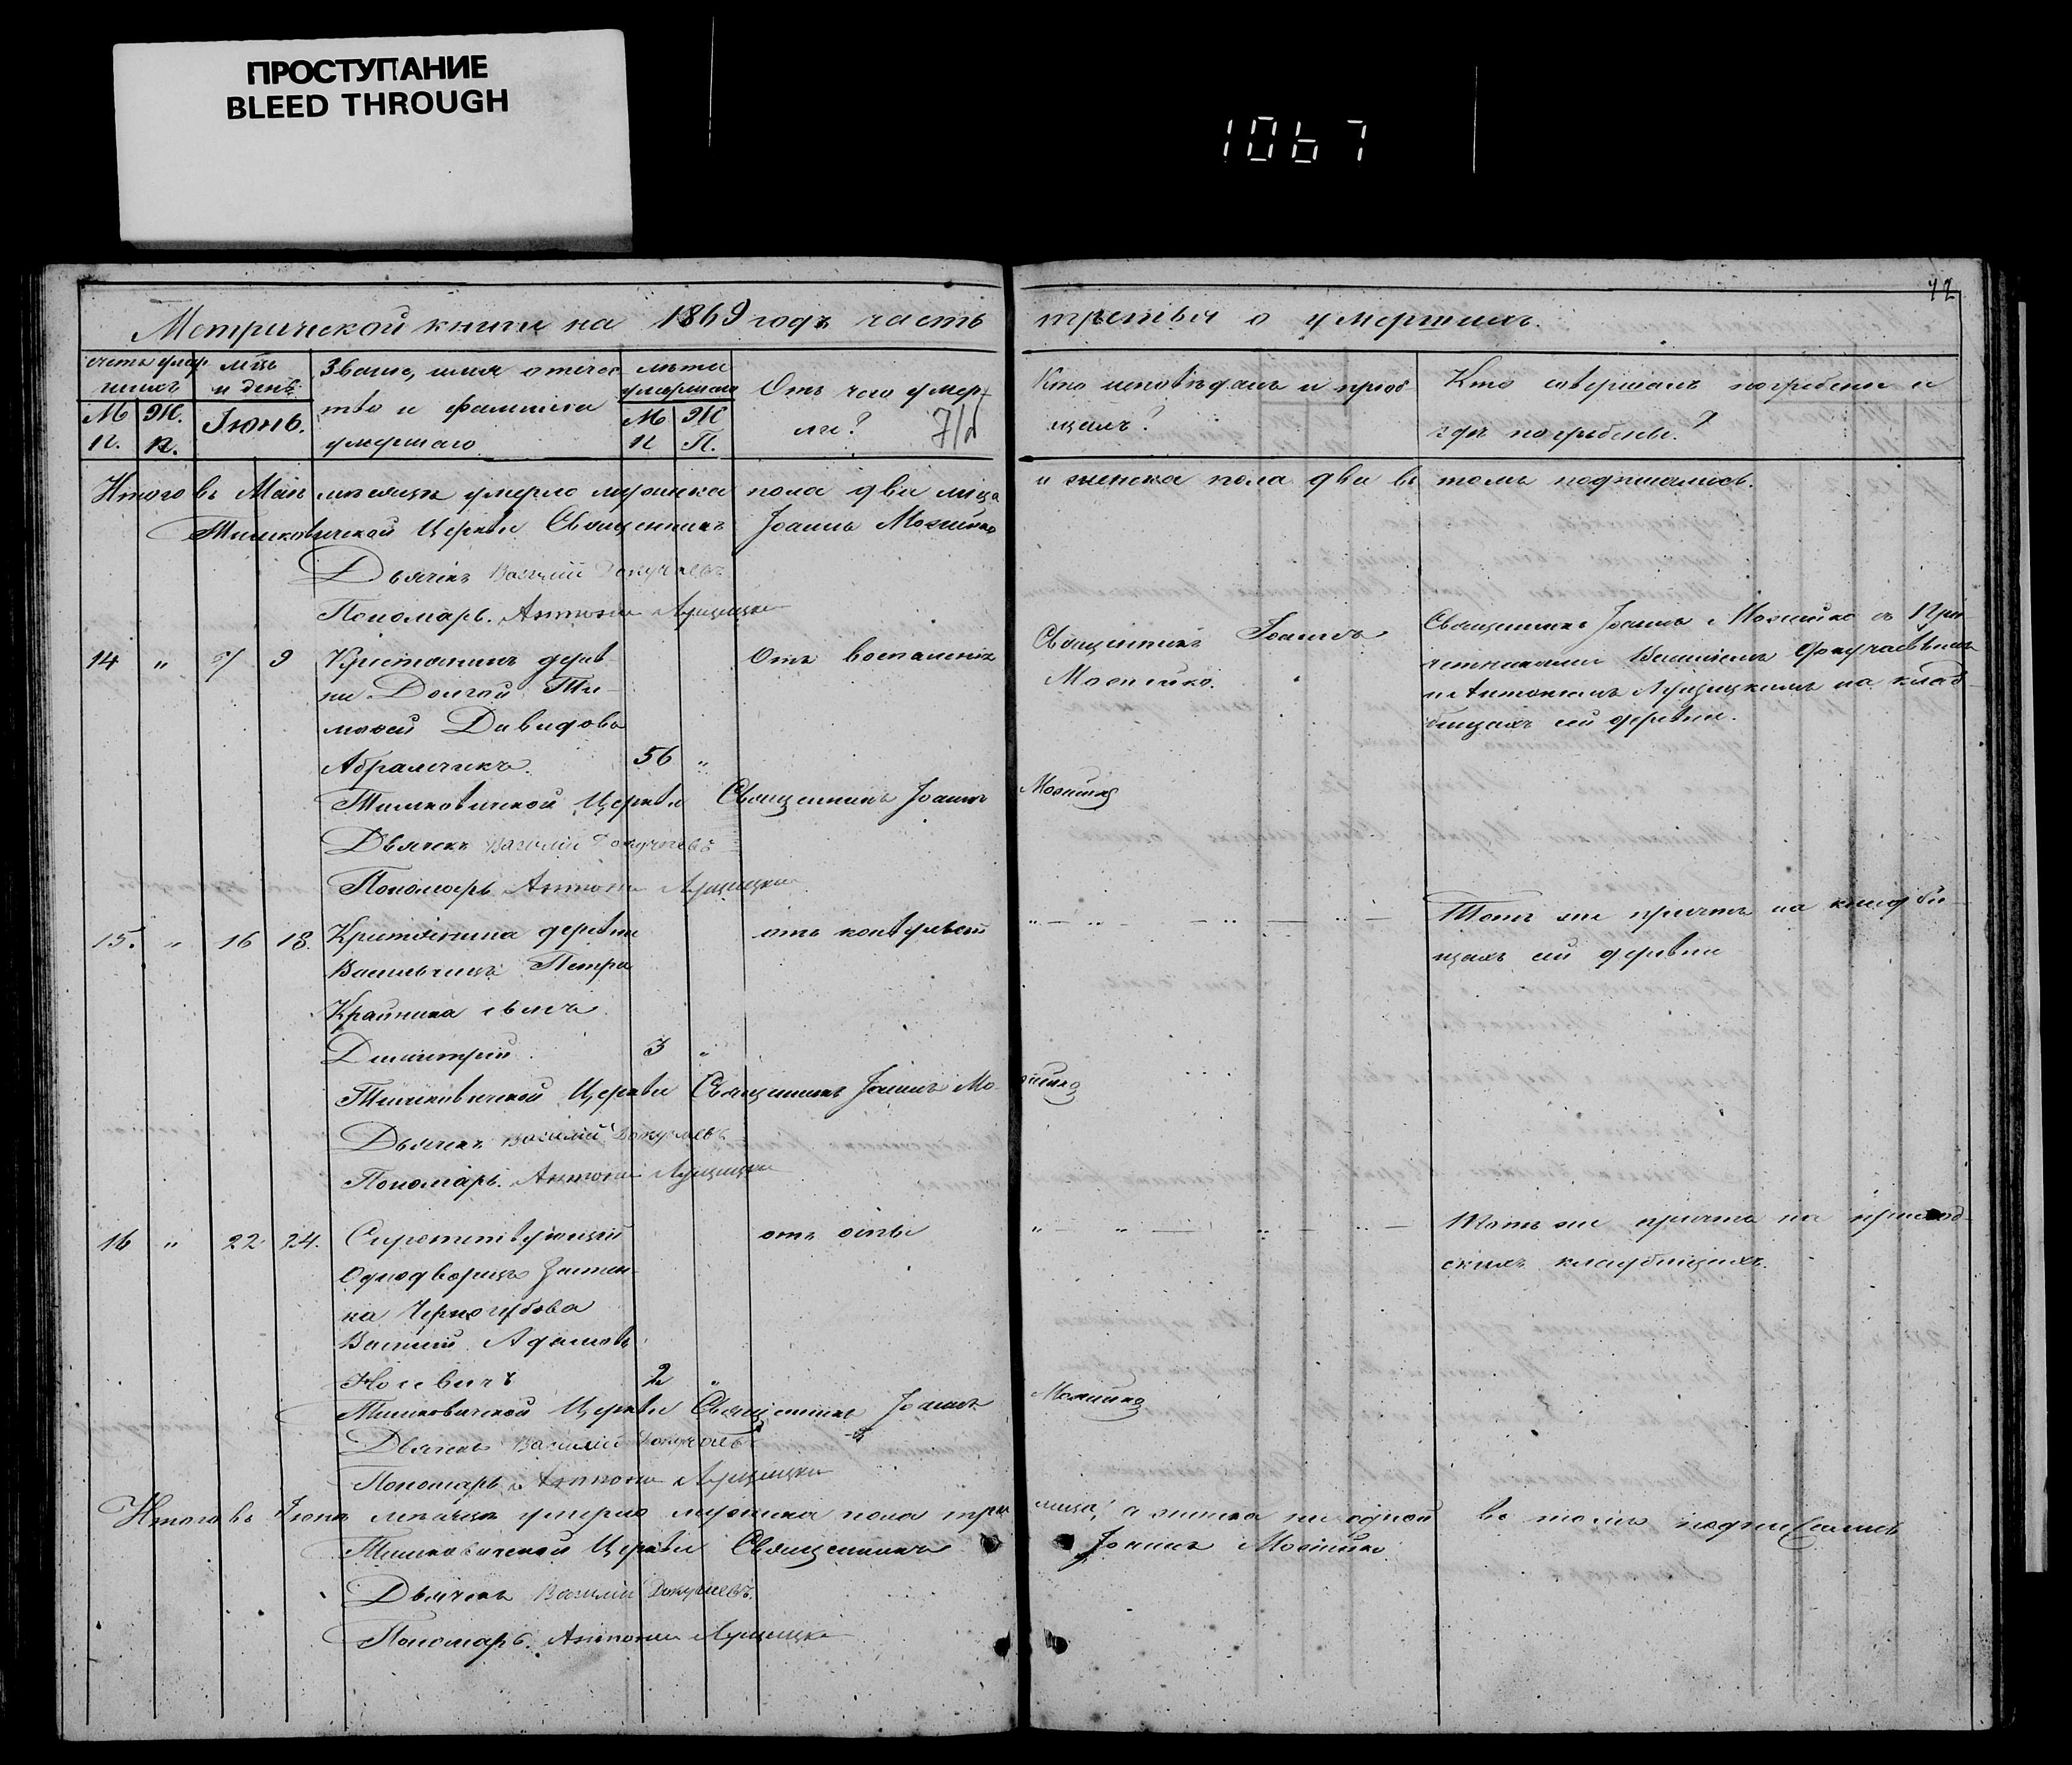 ПРОСТУПАНИЕ
BLEED THROUGH
1067
42
Метрической книги на 1869 годъ часть третья о умершихъ.
счетъ умер
шихъ
М П.
Ж. П.
мѣць
и день
Іюнь.
Званіе, имя отечес
тво и фамилія
умершаго
лѣта
умершаго
М П
Ж П.
Отъ чего умер
ли?
Кто исповѣдалъ и прiоб
щалъ?
Кто совершалъ погребенiе и
гдѣ погребены?
Итого въ Маѣ мѣсяцѣ умерло мужеска пола два лица и женска пола два въ томъ подписались.
Тимковичской Церкви Священникъ Іоаннъ Можейко
Дьячекъ Василій Докучаевъ
Пономарь. Антоній Лущицкій
14 " 7 9 Крестьянинъ дерев
ни Долгой Ти-
мофей Давидовъ
Абрамчикъ. 56 "
Отъ воспаленія
Священникъ Іоаннъ
Можейко.
Священникъ Іоаннъ Можейко съ При
четниками Василіемъ Докучаевымъ
и Антоніемъ Лущицкимъ на клад
бищахъ сей деревни.
Тимковичской Церкви Священникъ Іоаннъ Можейко
Дьячекъ Василій Докучаевъ
Пономарь Антоній Лущицкій
15. " 16 18. Крестянина деревни
Васильчицъ Петра
Крайника сынъ
Димитрий 3 "
Тотъ же причтъ на кладби
щахъ сей деревни
Тимковичской Церкви Священникъ Іоаннъ Можейко
Дьячекъ Василій Докучаевъ
Пономарь. Антоній Лущицкій
16 " 22 24. Сиротствующій
Однодворецъ Застен-
ка Черногубова
Василий Адамовъ
2 "
отъ оспы
Тотъ же причтъ на приход-
скихъ кладбищахъ.
Тимковичской Церкви Священникъ Іоаннъ Можейко
Дьячекъ Василій Докучаевъ
Пономарь Антоній Лущицкій
Итого въ Іюнѣ мѣсяцѣ умерло мужеска пола три лица, а женска ни одной въ томъ подписались
Тимковичской Церкви Священникъ Іоаннъ Можейко
Дьячекъ Василій Докучаевъ.
Пономарь. Антоній Лущицкій